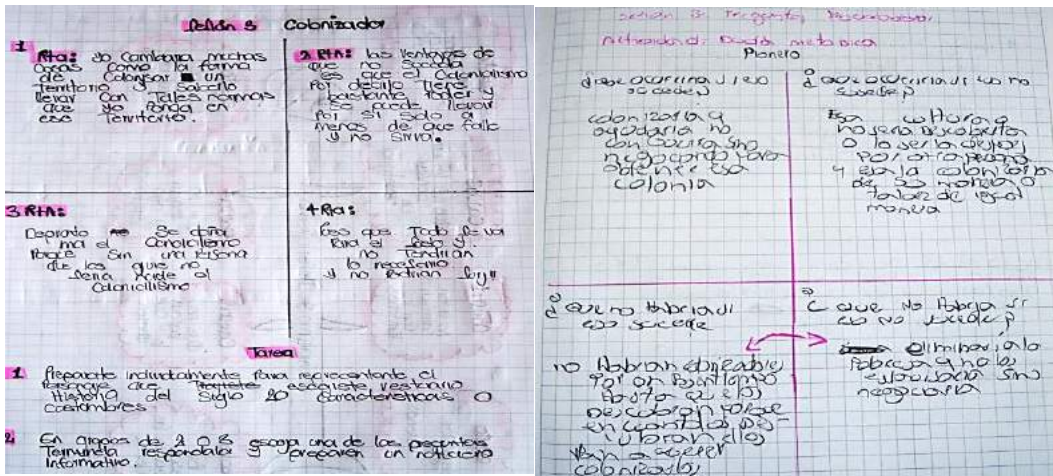 Sesión 3 Colonizador
1 Rta: yo cambiaria muchas
cosas como la forma
de colonisar un
territorio y
llevar con tales normas
que yo ponga en
ese territorio.
2 Rta: las ventajas de
que no suceda
es que el colonialismo
por decirlo tiene
bastante poder y
se puede llevar
por si solo a
menos de que falle
y no sirva.
3 Rta:
se daña
mal el
porque sin una persona
que los guie no
el
4 Rta:
pos que todo se va
para el y
no tendrian
lo necesario
y no podrian
Tarea
1 Preparate individualmente para
personaje que vestuario
Historia del siglo 20 caracteristicas o
costumbres.
2 En grupos de 2 o 3 escoja una de las preguntas
respondala y preparen un noticiero
informativo.
Sesión 3: Preguntas
Actividad 1: Duda metodica
Planero
¿que ocurriria si eso
sucede?
colonizaria y
ayudaria no
con guerra sino
negociando para
obtener esa
colonia
¿que ocurriria si eso no
sucede?
Esa cultura
no seria descubierta
o lo seria
por otra persona
y esa la colonizaria
de su manera o
tal vez de igual
manera
¿Que no habria si
eso sucede
no habrian
por un
hasta que los
descubran porque
en cuanto los
descubran ellos
van a
colonizarlos
¿que no habria si
eso no sucede?
eliminaria la
pobreza y no la
esclavizaria sino
negociaria